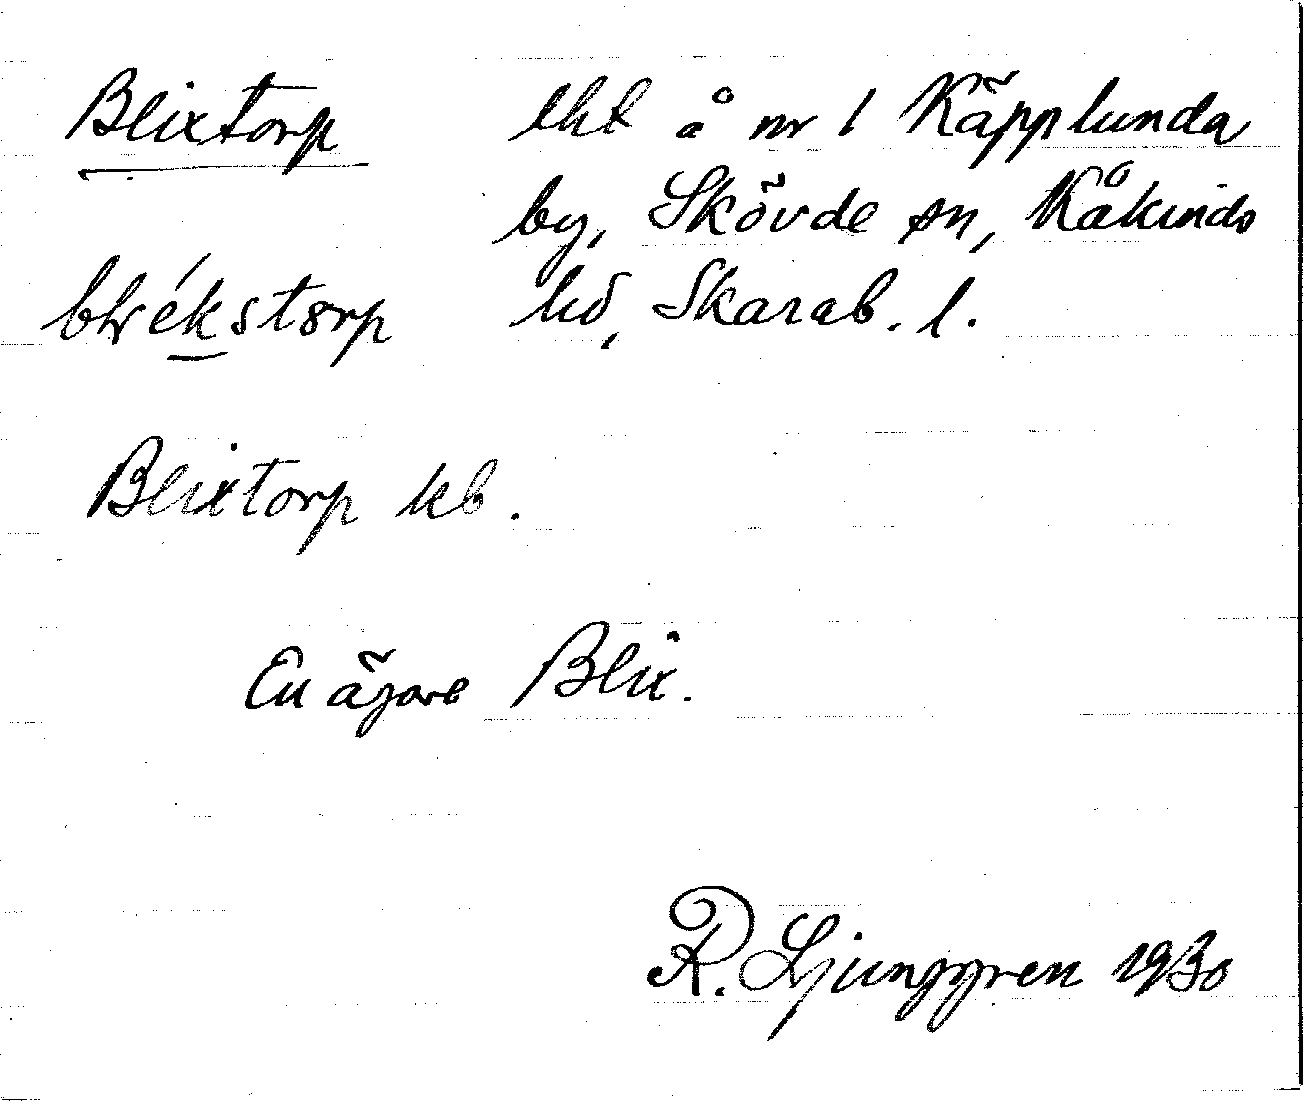 Blixtorp lht å nr 1 Käpplunda
by, Skövde sn, Kåkinds
hd, Skarab. l.
Blixtorp kb.
En ägare Blix.
R. Ljunggren 1930